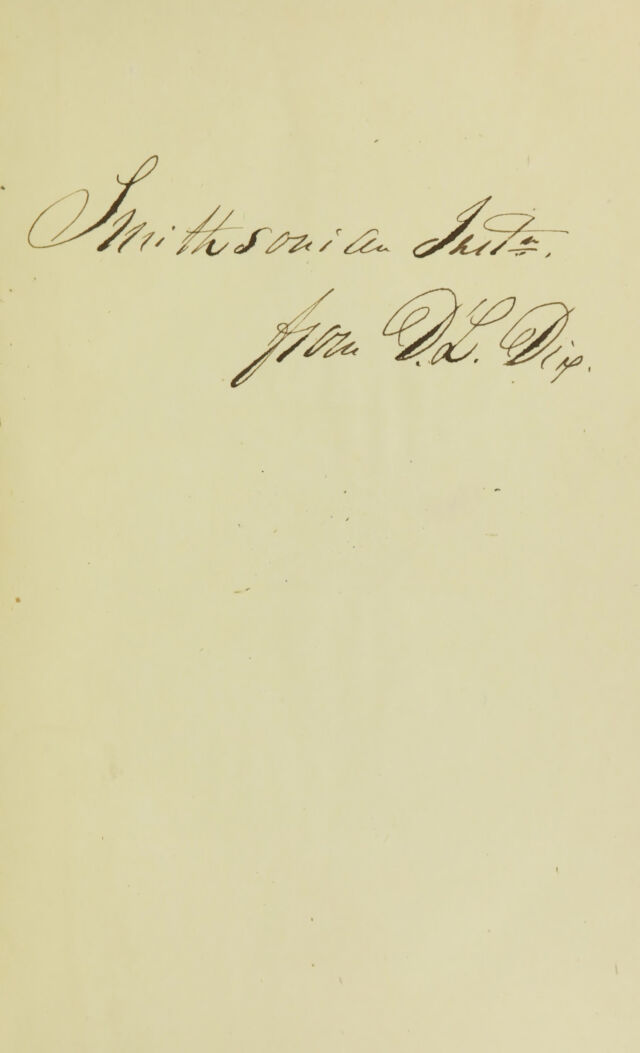 Smithsonian Instn.
from D. L. Dix.